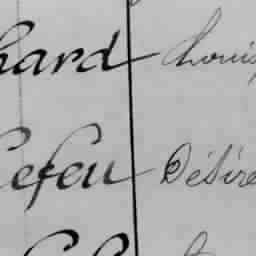 hard Louis
Lefeu Désiré